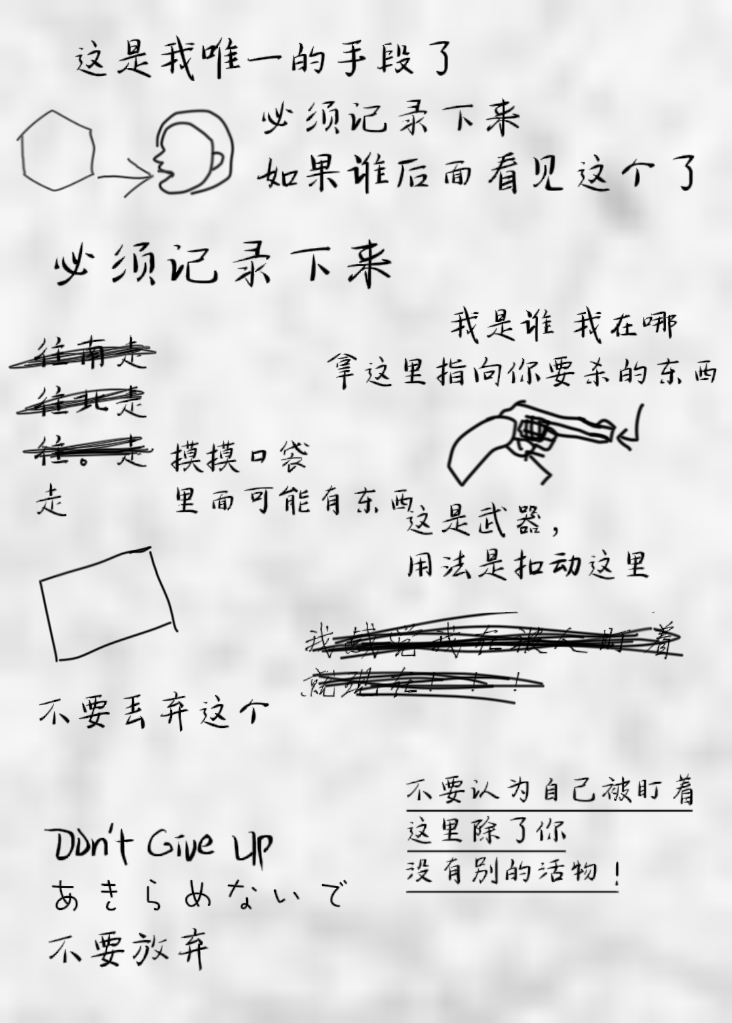 这是我唯一的手段了
必须记录下来
如果谁后面看见这个了
必须记录下来
我是谁 我在哪
拿这里指向你要杀的东西
往南走
往北走
往。走
走
摸摸口袋
里面可能有东西
这是武器，
用法是扣动这里
我感觉我在被人盯着
就现在！！！
不要丢弃这个
不要认为自己被盯着
这里除了你
没有别的活物！
Don't Give Up
あきらめないで
不要放弃